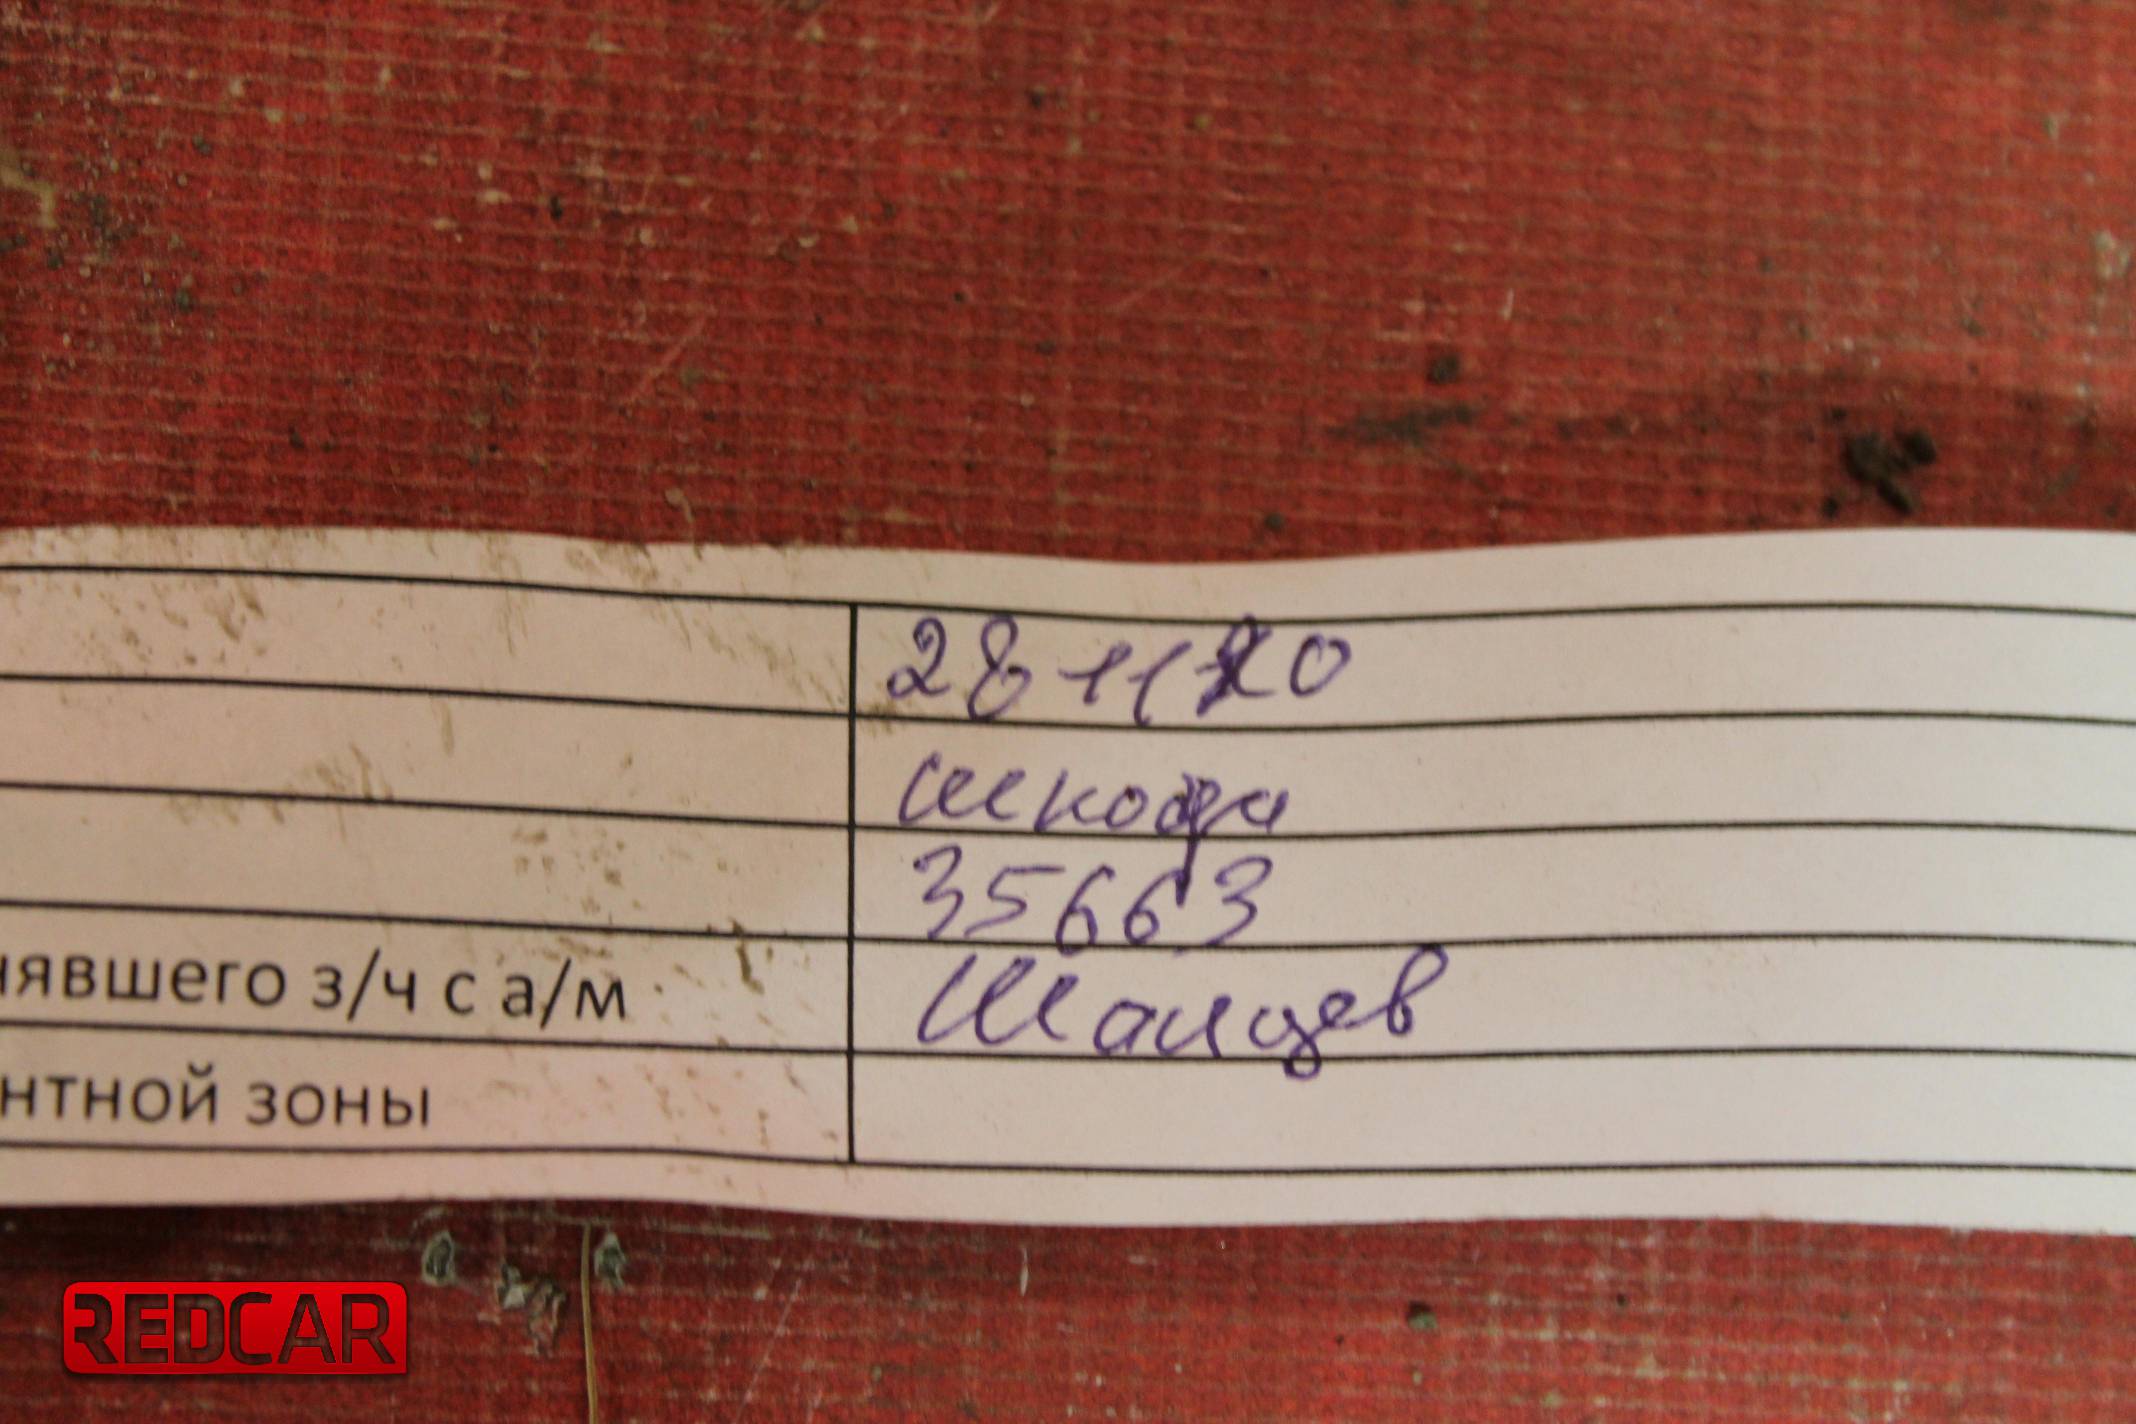 28 11 20
шкода
35663
нявшего з/ч с а/м Шанцев
нтной зоны
REDCAR